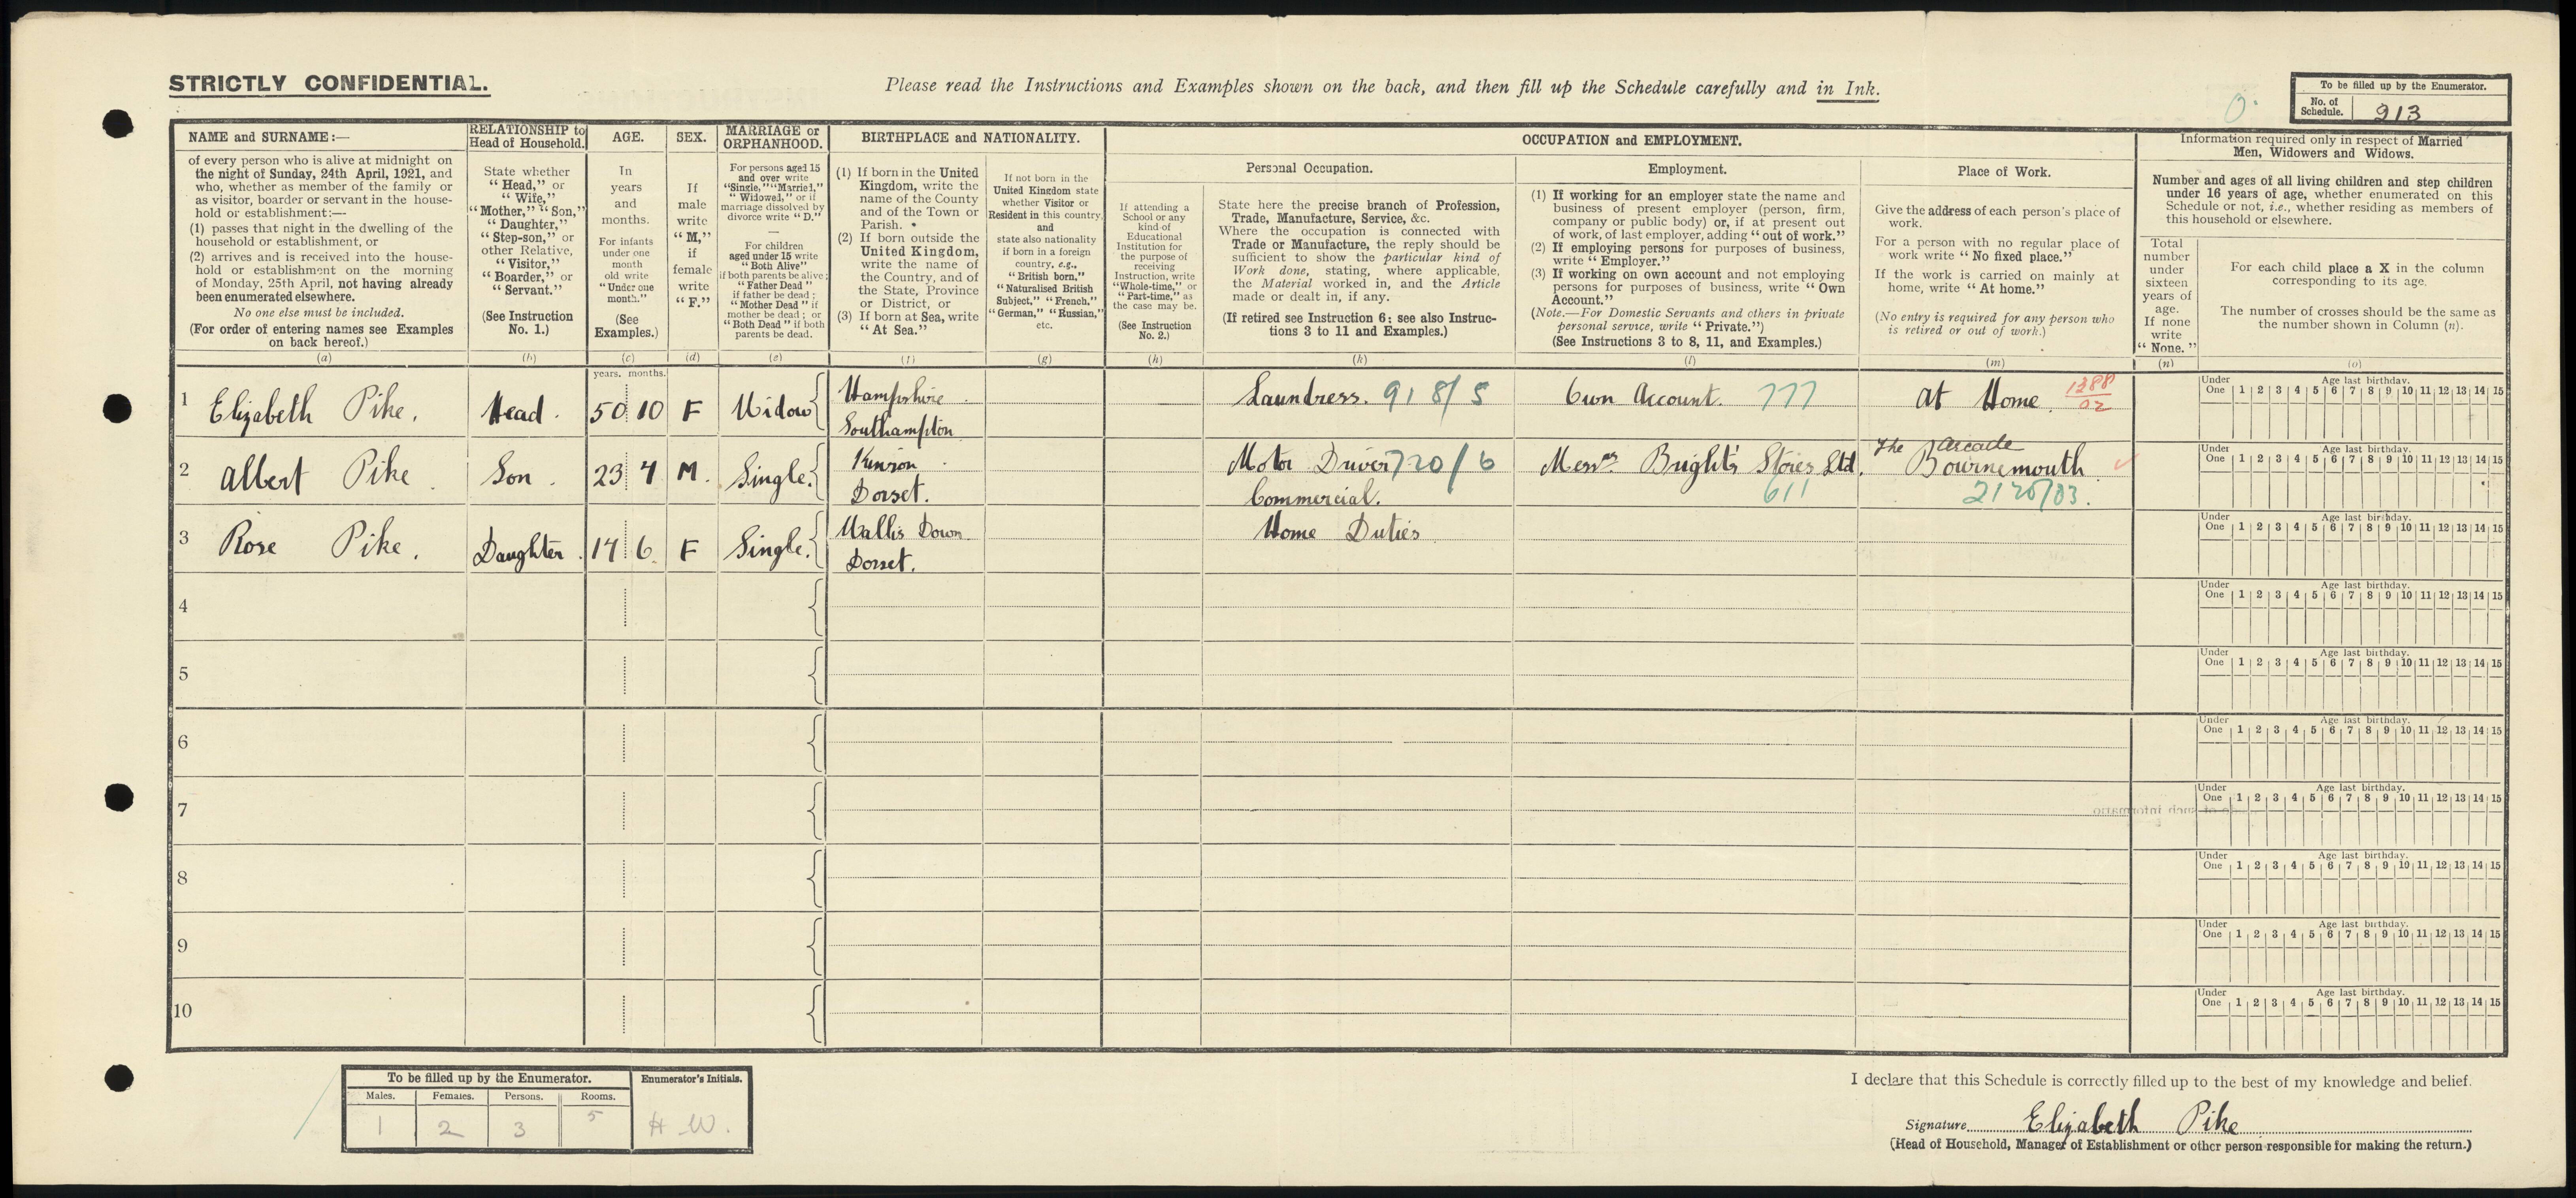 STRICTLY CONFIDENTIAL.
Please read the Instructions and Examples shown on the back, and then fill up the Schedule carefully and in Ink.
To be filled up by the Enumerator.
No. of Schedule. 213
NAME and SURNAME:—
of every person who is alive at midnight on
the night of Sunday, 24th April, 1921, and
who, whether as member of the family or
as visitor, boarder or servant in the house-
hold or establishment:—
(1) passes that night in the dwelling of the
household or establishment, or
(2) arrives and is received into the house-
hold or establishment on the morning
of Monday, 25th April, not having already
been enumerated elsewhere.
No one else must be included.
(For order of entering names see Examples
on back hereof.)
(a)
RELATIONSHIP to
Head of Household.
State whether
“Head,” or
“Wife,”
“Mother,” “Son,”
“Daughter,”
“Step-son,” or
other Relative,
“Visitor,”
“Boarder,” or
“Servant.”
(See Instruction
No. 1.)
(b)
AGE.
In
years
and
months.
For infants
under one
month
old write
“Under one
month.”
(See
Examples.)
(c)
SEX.
If
male
write
“M,”
if
female
write
“F.”
(d)
MARRIAGE or
ORPHANHOOD.
For persons aged 15
and over write
“Single,” “Married,”
“Widowed,” or if
marriage dissolved by
divorce write “D.”
—
For children
aged under 15 write
“Both Alive”
if both parents be alive;
“Father Dead”
if father be dead;
“Mother Dead” if
mother be dead; or
“Both Dead” if both
parents be dead.
(e)
BIRTHPLACE and NATIONALITY.
(1) If born in the United
Kingdom, write the
name of the County
and of the Town or
Parish.
(2) If born outside the
United Kingdom,
write the name of
the Country, and of
the State, Province
or District, or
(3) If born at Sea, write
“At Sea.”
(f)
If not born in the
United Kingdom state
whether Visitor or
Resident in this country,
and
state also nationality
if born in a foreign
country, e.g.,
“British born,”
“Naturalised British
Subject,” “French,”
“German,” “Russian,”
etc.
(g)
OCCUPATION and EMPLOYMENT.
If attending a
School or any
kind of
Educational
Institution for
the purpose of
receiving
Instruction, write
“Whole-time,” or
“Part-time,” as
the case may be.
(See Instruction
No. 2.)
(h)
Personal Occupation.
State here the precise branch of Profession,
Trade, Manufacture, Service, &c.
Where the occupation is connected with
Trade or Manufacture, the reply should be
sufficient to show the particular kind of
Work done, stating, where applicable,
the Material worked in, and the Article
made or dealt in, if any.
(If retired see Instruction 6; see also Instruc-
tions 3 to 11 and Examples.)
(k)
Employment.
(1) If working for an employer state the name and
business of present employer (person, firm,
company or public body) or, if at present out
of work, of last employer, adding “out of work.”
(2) If employing persons for purposes of business,
write “Employer.”
(3) If working on own account and not employing
persons for purposes of business, write “Own
Account.”
(Note.—For Domestic Servants and others in private
personal service, write “Private.”)
(See Instructions 3 to 8, 11, and Examples.)
(l)
Place of Work.
Give the address of each person's place of
work.
For a person with no regular place of
work write “No fixed place.”
If the work is carried on mainly at
home, write “At home.”
(No entry is required for any person who
is retired or out of work.)
(m)
Information required only in respect of Married
Men, Widowers and Widows.
Number and ages of all living children and step children
under 16 years of age, whether enumerated on this
Schedule or not, i.e., whether residing as members of
this household or elsewhere.
Total
number
under
sixteen
years of
age.
If none
write
“None.”
(n)
For each child place a X in the column
corresponding to its age.
The number of crosses should be the same as
the number shown in Column (n).
(o)
years. months.
1 Elizabeth Pike. Head. 50 10 F Widow Hampshire Southampton Laundress. 918/5 Own Account. 777 at Home. 1388/02
Under One 1 2 3 4 5 6 7 8 9 10 11 12 13 14 15
Age last birthday.
2 Albert Pike. Son. 23 4 M. Single. Kinson Dorset. Motor Driver 720/6 Commercial. Messrs Bright's Stores Ltd. 611 The Arcade Bournemouth 2120/03.
Under One 1 2 3 4 5 6 7 8 9 10 11 12 13 14 15
Age last birthday.
3 Rose Pike. Daughter. 17 6 F Single. Wallis Down Dorset. Home Duties
Under One 1 2 3 4 5 6 7 8 9 10 11 12 13 14 15
Age last birthday.
4
Under One 1 2 3 4 5 6 7 8 9 10 11 12 13 14 15
Age last birthday.
5
Under One 1 2 3 4 5 6 7 8 9 10 11 12 13 14 15
Age last birthday.
6
Under One 1 2 3 4 5 6 7 8 9 10 11 12 13 14 15
Age last birthday.
7
Under One 1 2 3 4 5 6 7 8 9 10 11 12 13 14 15
Age last birthday.
8
Under One 1 2 3 4 5 6 7 8 9 10 11 12 13 14 15
Age last birthday.
9
Under One 1 2 3 4 5 6 7 8 9 10 11 12 13 14 15
Age last birthday.
10
Under One 1 2 3 4 5 6 7 8 9 10 11 12 13 14 15
Age last birthday.
To be filled up by the Enumerator.
Enumerator's Initials.
Males. Females. Persons. Rooms.
1 2 3 5 H W.
I declare that this Schedule is correctly filled up to the best of my knowledge and belief.
Signature Elizabeth Pike
(Head of Household, Manager of Establishment or other person responsible for making the return.)